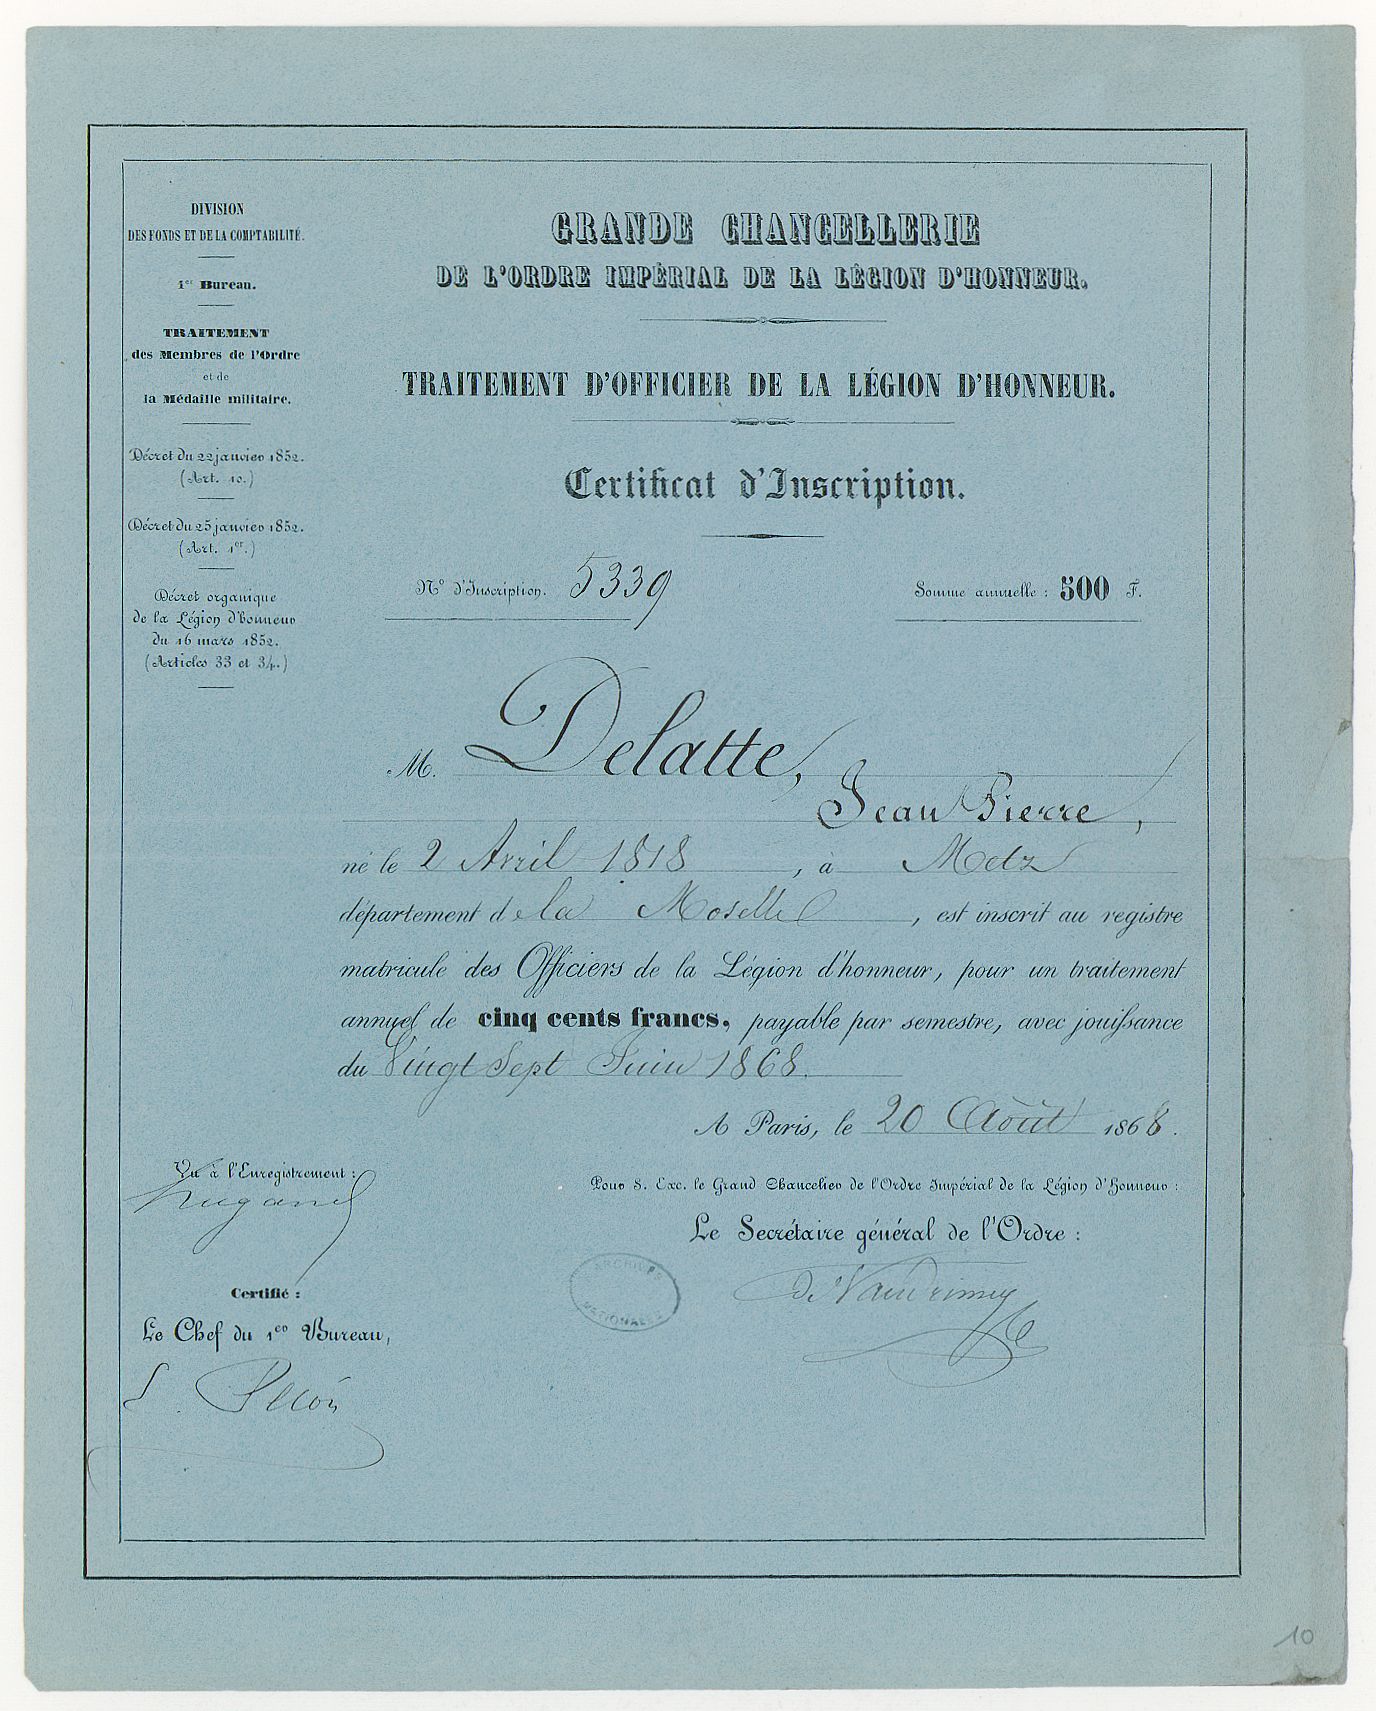 DIVISION
DES FONDS ET DE LA COMPTABILITÉ.
1er Bureau.
TRAITEMENT
des Membres de l'Ordre
et de
la Médaille militaire.
Décret du 22 janvier 1852.
(Art. 10.)
Décret du 25 janvier 1852.
(Art. 1er.)
Décret organique
de la Légion d'honneur
du 16 mars 1852.
(Articles 33 et 34.)
GRANDE CHANCELLERIE
DE L'ORDRE IMPÉRIAL DE LA LÉGION D'HONNEUR.
TRAITEMENT D'OFFICIER DE LA LÉGION D'HONNEUR.
Certificat d'Inscription.
N° d'Inscription. 5339
Somme annuelle : 500 F.
M. Delatte,
Jean Pierre,
né le 2 Avril 1818, à Metz
département de la Moselle, est inscrit au registre
matricule des Officiers de la Légion d'honneur, pour un traitement
annuel de cinq cents francs, payable par semestre, avec jouissance
du Vingt Sept Juin 1868.
A Paris, le 20 Août 1868.
Vu à l'Enregistrement :
Pour S. Exc. le Grand Chancelier de l'Ordre Impérial de la Légion d'Honneur :
Le Secrétaire général de l'Ordre :
de Vaudrimey
ARCHIVES
NATIONALES
Certifié :
Le Chef du 1er Bureau,
10